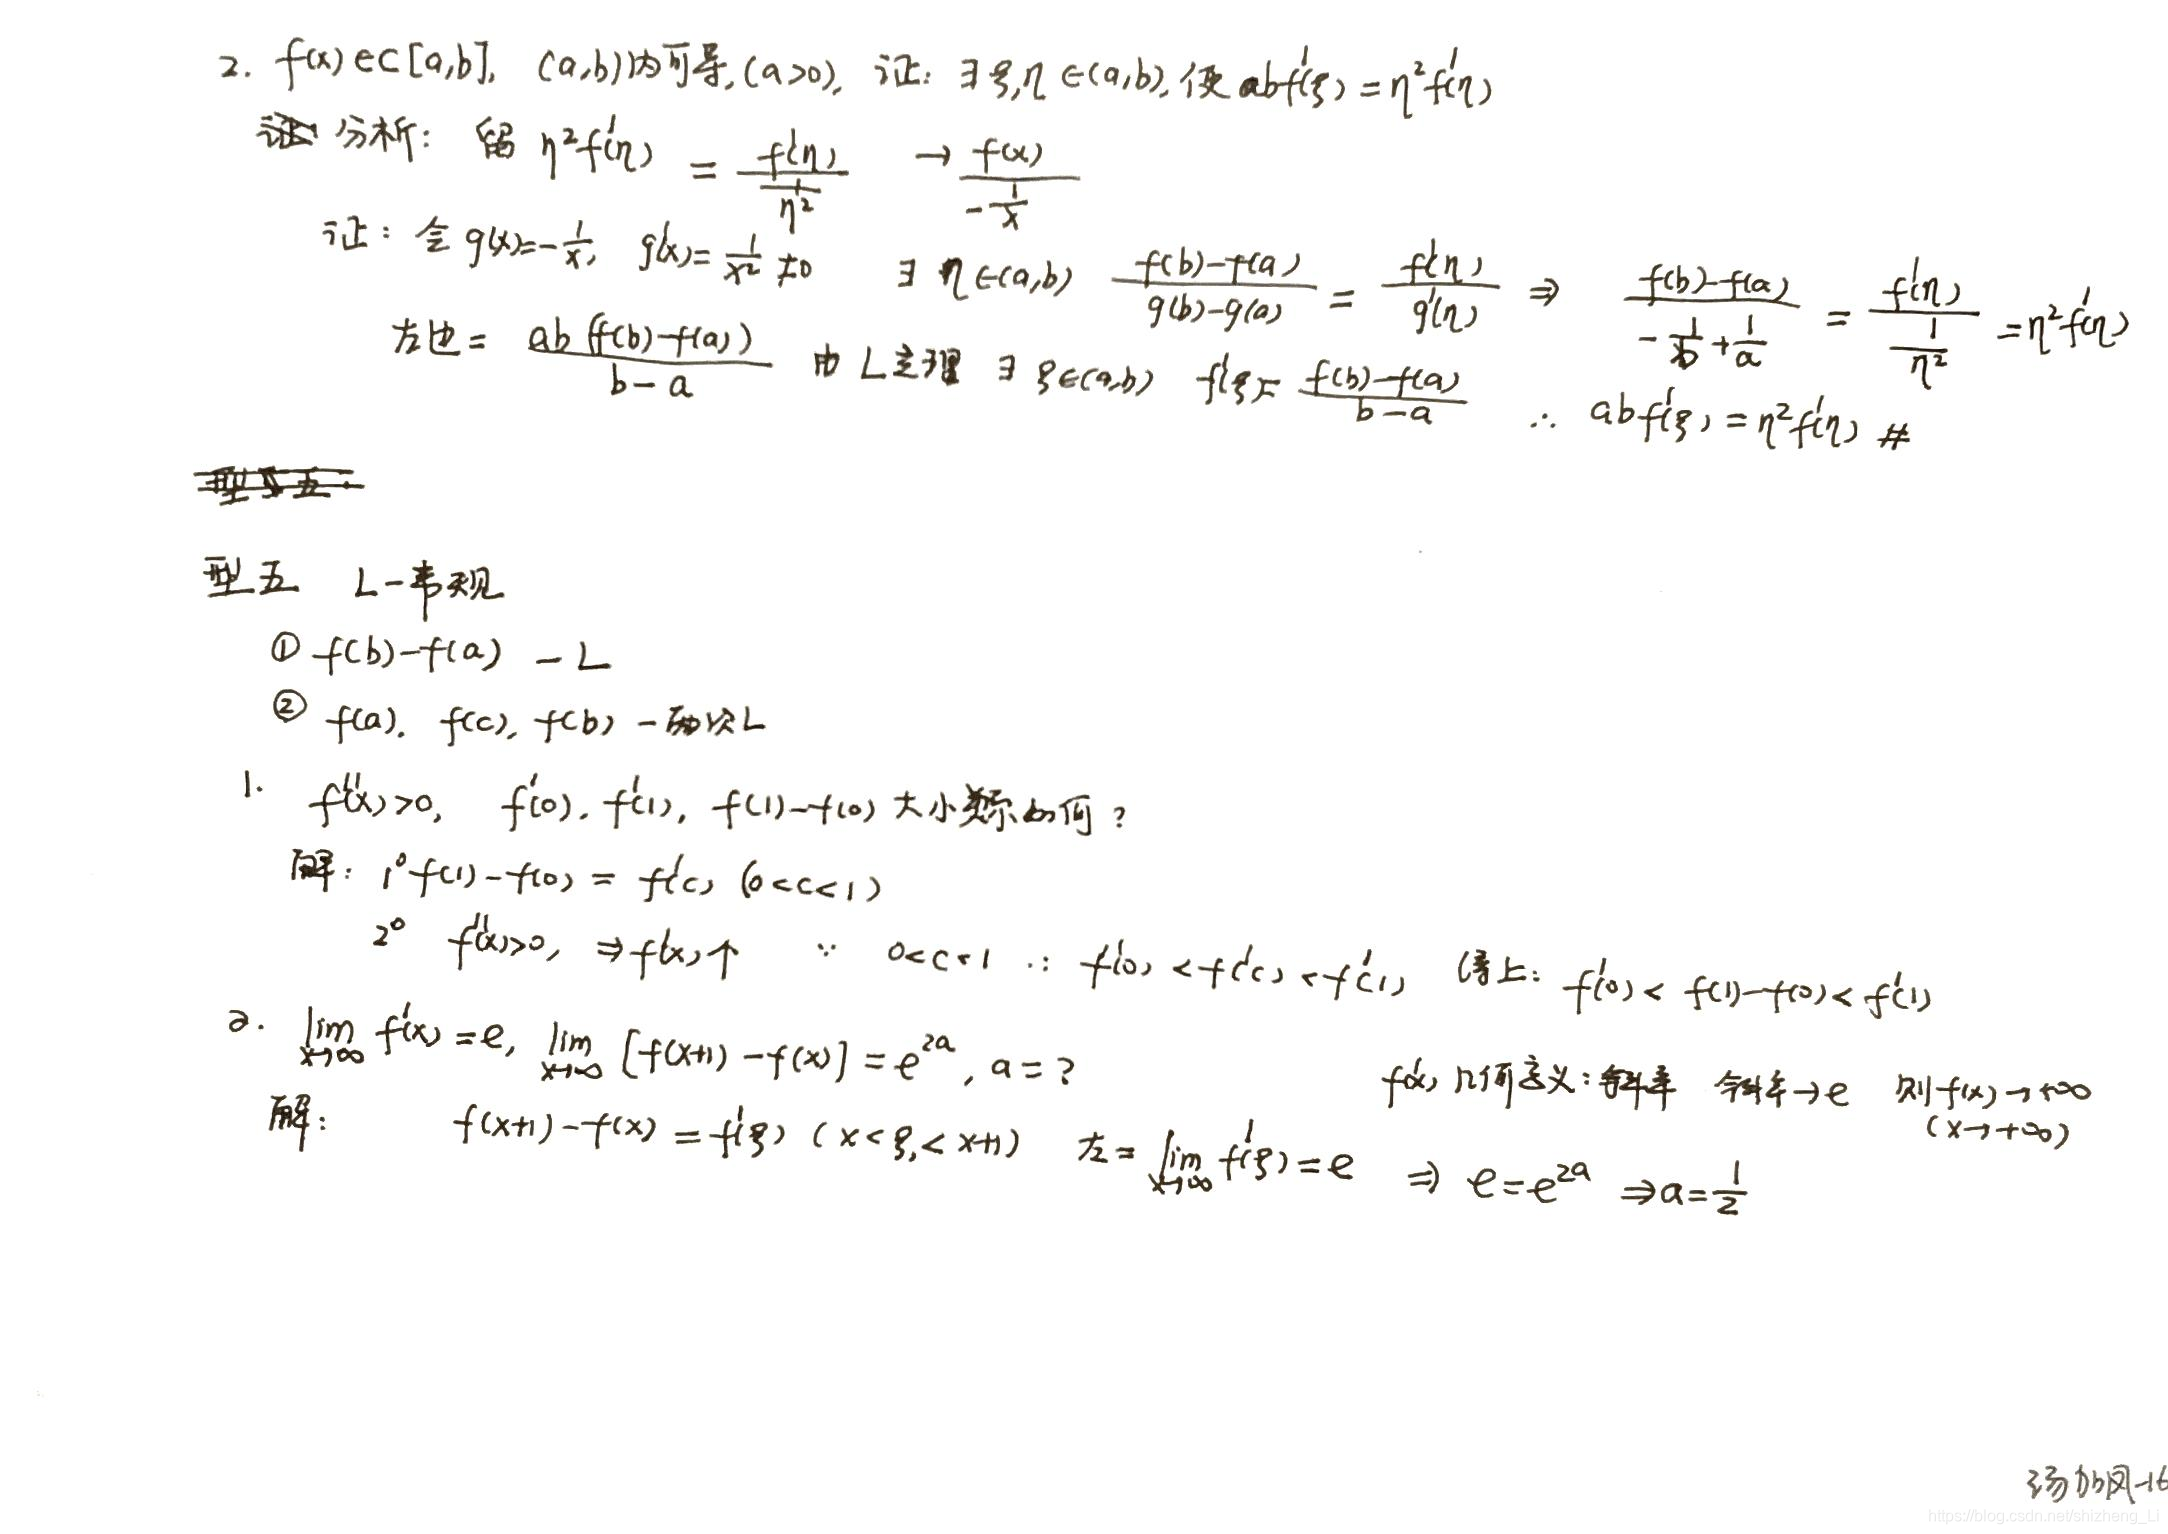 2. f(x)∈C[a,b], (a,b)内可导,(a>0), 证: ∃ξ,η∈(a,b), 使 abf'(ξ)=η²f'(η)
分析: 留 η²f'(η) = f'(η)/(1/η²) → f(x)/(-1/x)
证: 令 g(x)=-1/x, g'(x)=1/x²≠0 ∃η∈(a,b) (f(b)-f(a))/(g(b)-g(a)) = f'(η)/g'(η) ⇒ (f(b)-f(a))/(-1/b+1/a) = f'(η)/(1/η²) =η²f'(η)
左边= ab(f(b)-f(a))/(b-a) 由L定理 ∃ξ∈(a,b) f'(ξ)=(f(b)-f(a))/(b-a) ∴ abf'(ξ)=η²f'(η) #
型五:
型五 L-常规
① f(b)-f(a) - L
② f(a). f(c), f(b) - 两次L
1. f''(x)>0, f'(0). f'(1), f(1)-f(0) 大小关系如何?
解: 1° f(1)-f(0) = f'(c) (0<c<1)
2° f''(x)>0, ⇒f'(x)↑ ∵ 0<c<1 ∴ f'(0)<f'(c)<f'(1) 综上: f'(0)< f(1)-f(0)< f'(1)
2. lim x→∞ f'(x)=e, lim x→∞ [f(x+1)-f(x)]=e^{2a}, a=?
f'(x) 几何意义: 斜率 斜率→e 则f(x)→+∞ (x→+∞)
解: f(x+1)-f(x)=f'(ξ) (x<ξ<x+1) 左= lim x→∞ f'(ξ)=e ⇒ e=e^{2a} ⇒a=1/2
汤加凤-16
https://blog.csdn.net/shizheng_Li